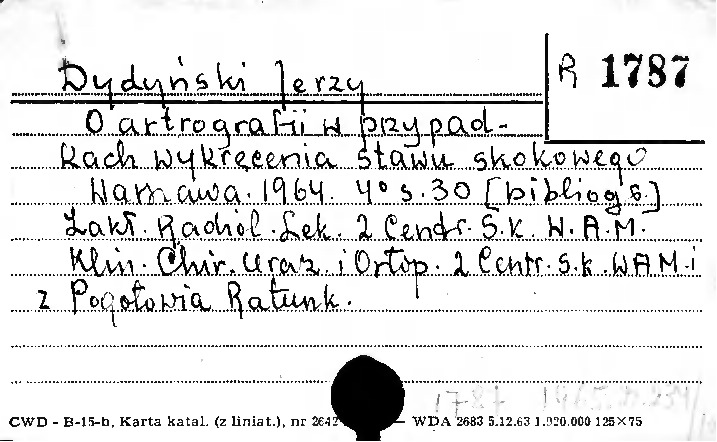 Dydyński Jerzy
R 1787
O artrografii w przypad-
kach wykręcenia stawu skokowego
Warszawa. 1964. 4° s. 30 [bibliogr s.]
Zakł. Radiol. Lek. 2 Centr. S.K. W.A.M.
Klin. Chir. Uraz. i Ortop. 2 Centr. S.K. WAM. i
z Pogotowia Ratunk.
1787
CWD - B-15-b, Karta katal. (z liniat.), nr 2642 — WDA 2683 5.12.63 1.920.000 125×75